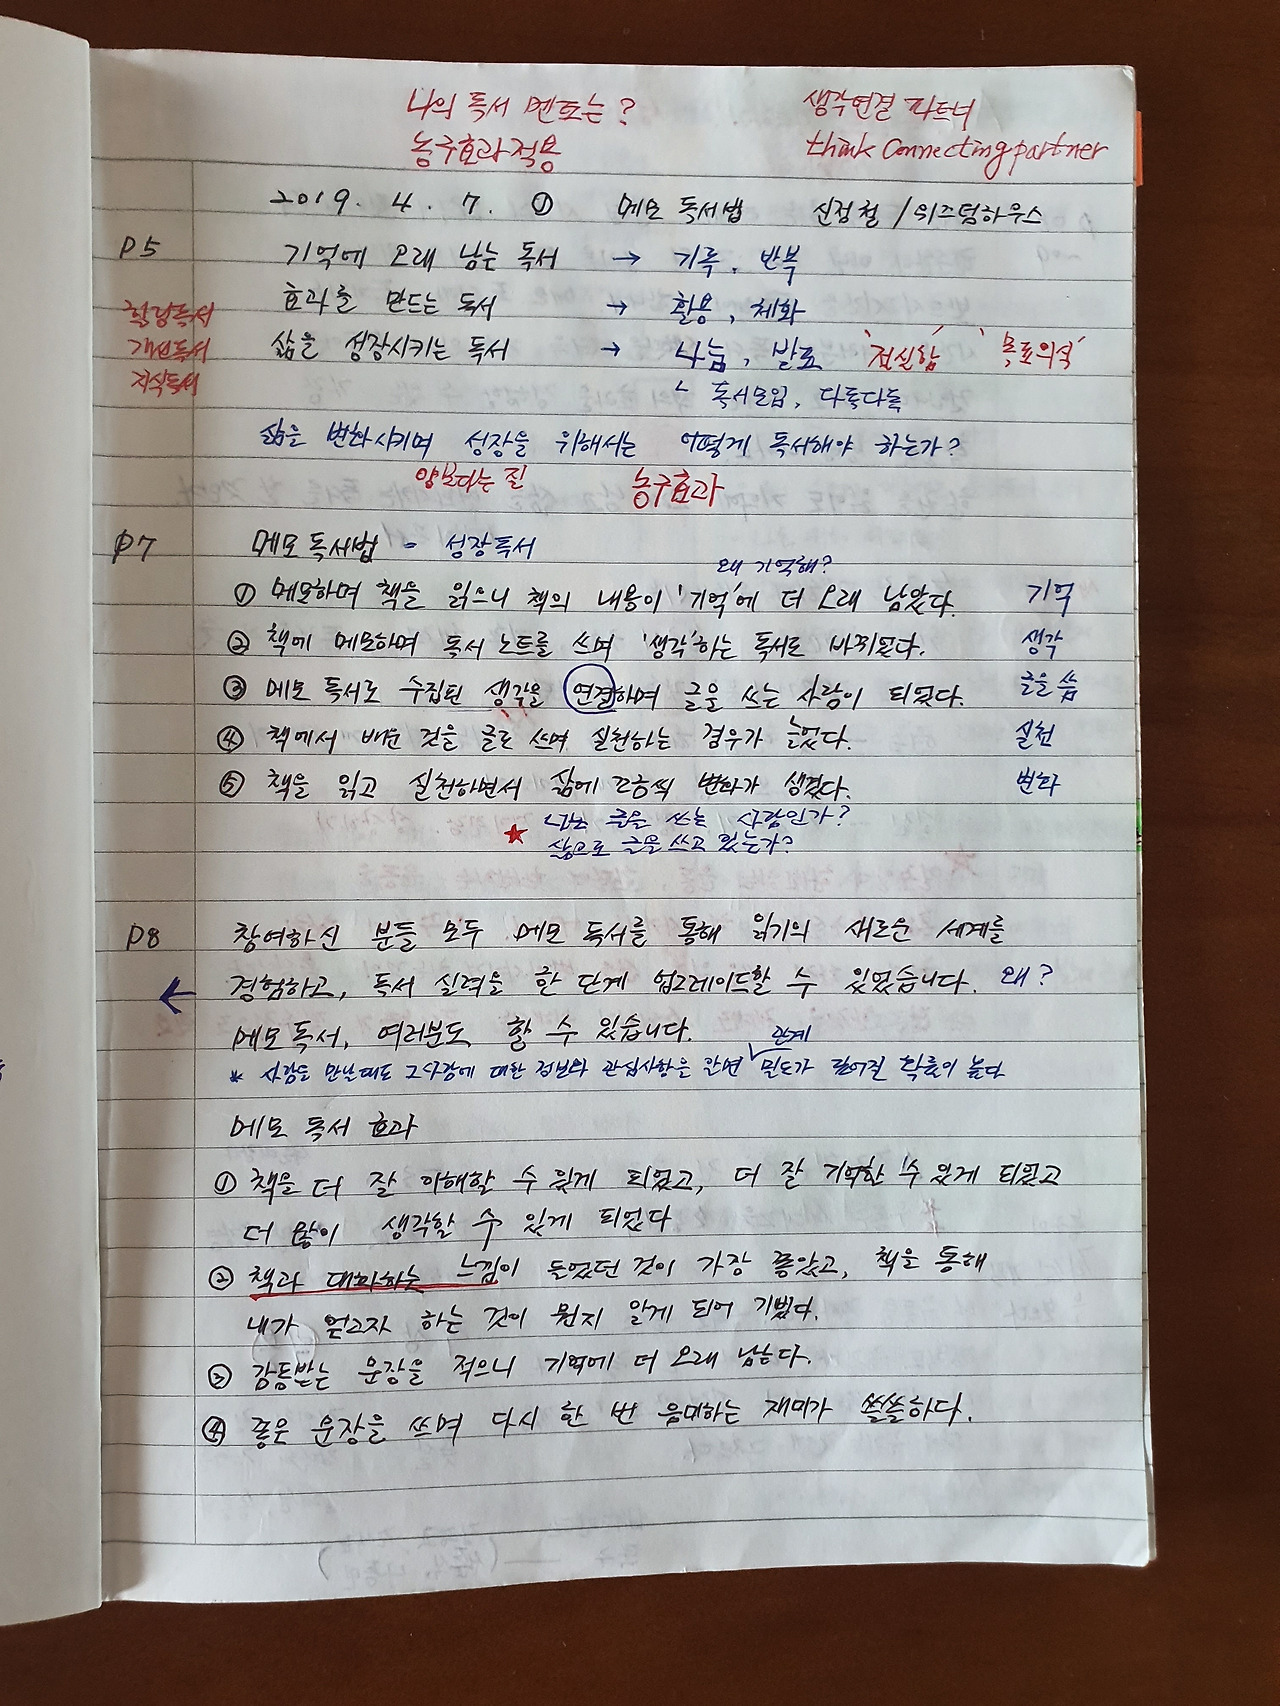 나의 독서 멘토는?
농구효과적용
생각연결 파트너
think connecting partner
2019. 4. 7. ① 메모 독서법 신정철 / 위즈덤하우스
P5 기억에 오래 남는 독서 → 기록, 반복
효과를 만드는 독서 → 활용, 체화
삶을 성장시키는 독서 → 나눔, 발표 '절실함' '목표의식'
개선독서
지식독서
ㄴ 독서모임, 다독다독
삶을 변화시키며 성장을 위해서는 어떻게 독서해야 하는가?
양보다는 질 농구효과
P7 메모 독서법 - 성장독서
왜 기억해?
① 메모하며 책을 읽으니 책의 내용이 '기억'에 더 오래 남았다. 기억
② 책에 메모하며 독서 노트를 쓰며 '생각'하는 독서로 바뀌었다. 생각
③ 메모 독서로 수집된 생각을 연결하며 글을 쓰는 사람이 되었다. 글을 씀
④ 책에서 배운 것을 글로 쓰며 실천하는 경우가 늘었다. 실천
⑤ 책을 읽고 실천하면서 삶에 조금씩 변화가 생겼다. 변화
★ 나는 글을 쓰는 사람인가?
삶으로 글을 쓰고 있는가?
P8 참여하신 분들 모두 메모 독서를 통해 읽기의 새로운 세계를
← 경험하고, 독서 실력을 한 단계 업그레이드할 수 있었습니다. 왜?
메모 독서, 여러분도 할 수 있습니다.
관계
* 사람을 만날때도 그사람에 대한 정보와 관심사항을 알면 밀도가 깊어질 확률이 높다
메모 독서 효과
① 책을 더 잘 이해할 수 있게 되었고, 더 잘 기억할 수 있게 되었고
더 많이 생각할 수 있게 되었다
② 책과 대화하는 느낌이 들었던 것이 가장 좋았고, 책을 통해
내가 얻고자 하는 것이 뭔지 알게 되어 기뻤다.
③ 감동받는 문장을 적으니 기억에 더 오래 남는다.
④ 좋은 문장을 쓰며 다시 한 번 음미하는 재미가 쏠쏠하다.